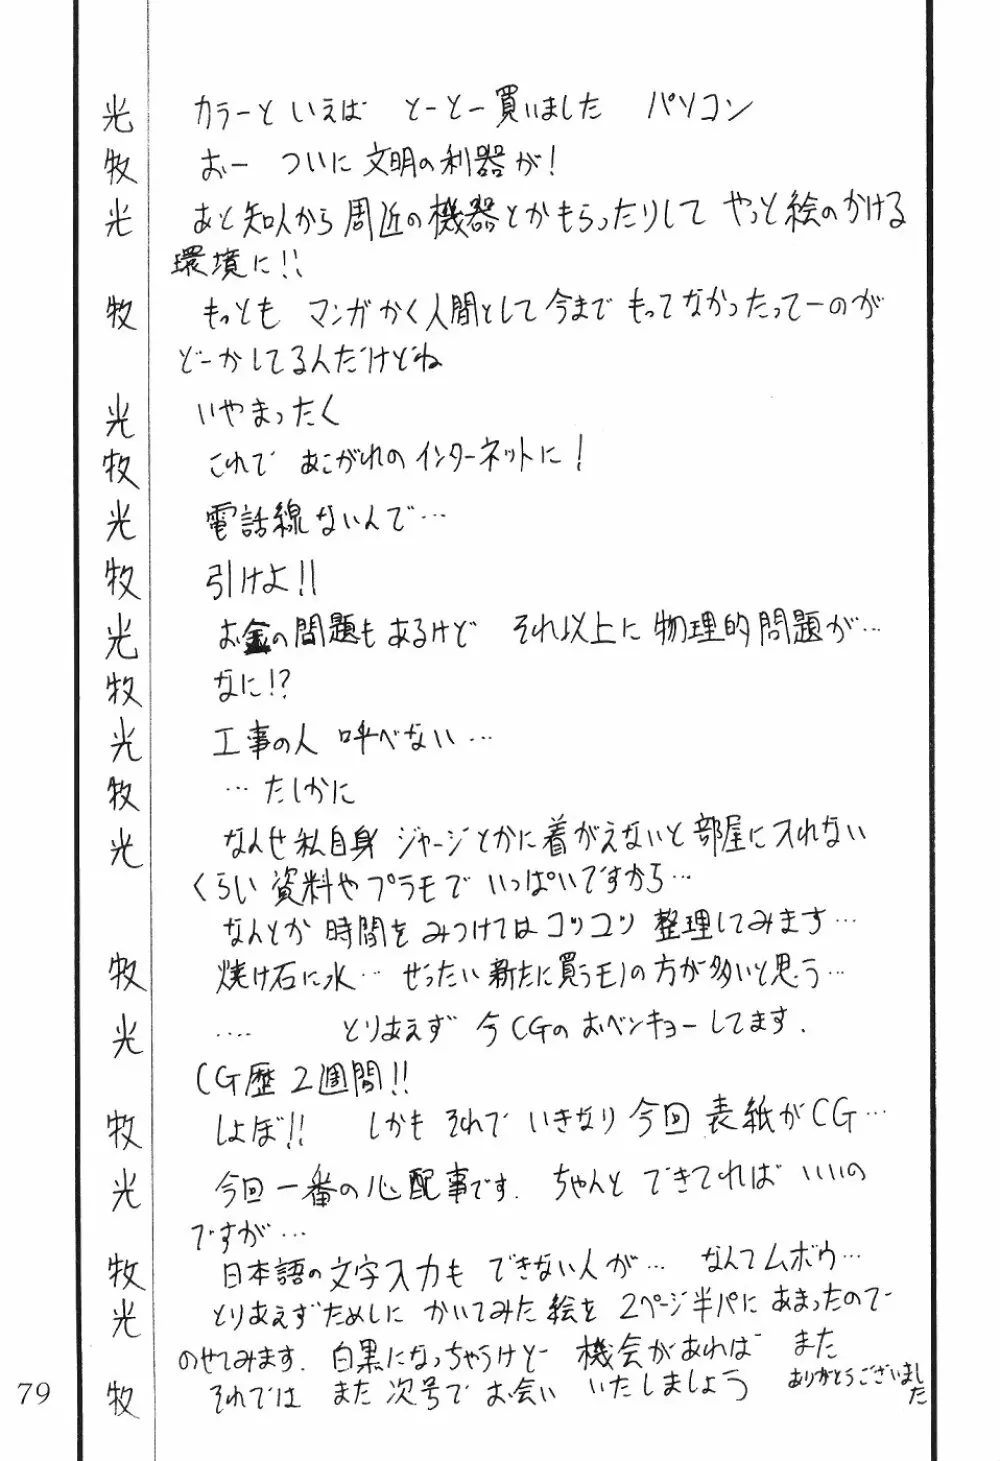 光 カラーと いえば とーとー買いました パソコン
牧 おー ついに 文明の利器が!
光 あと知人から周近の機器とかもらったりして やっと絵のかける
環境に!!
牧 もっとも マンガかく人間として今まで もってなかったってーのが
どーかしてるんだけどね
光 いやまったく
牧 これで あこがれのインターネットに!
光 電話線ないんで…
牧 引けよ!!
光 お金の問題もあるけど それ以上に物理的問題が…
牧 なに!?
光 工事の人 呼べない…
牧 …たしかに
光 なんせ私自身 ジャージとかに着がえないと部屋に入れない
くらい資料やプラモで いっぱいですから…
なんとか時間をみつけてはコツコツ 整理してみます…
牧 焼け石に水… ぜったい新たに買うモノの方が多いと思う…
光 …. とりあえず 今CGのおベンキョーしてます.
CG歴2週間!!
牧 しょぼ!! しかも それで いきなり今回表紙がCG…
光 今回一番の心配事です. ちゃんと できてれば いいの
ですが…
牧 日本語の文字入力も できない人が… なんてムボウ…
光 とりあえずためしに かいてみた絵を 2ページ半パにあまったので
のせてみます. 白黒になっちゃうけどー 機会があれば また
牧 それでは また次号で お会い いたしましょう ありがとうございまし
た
79